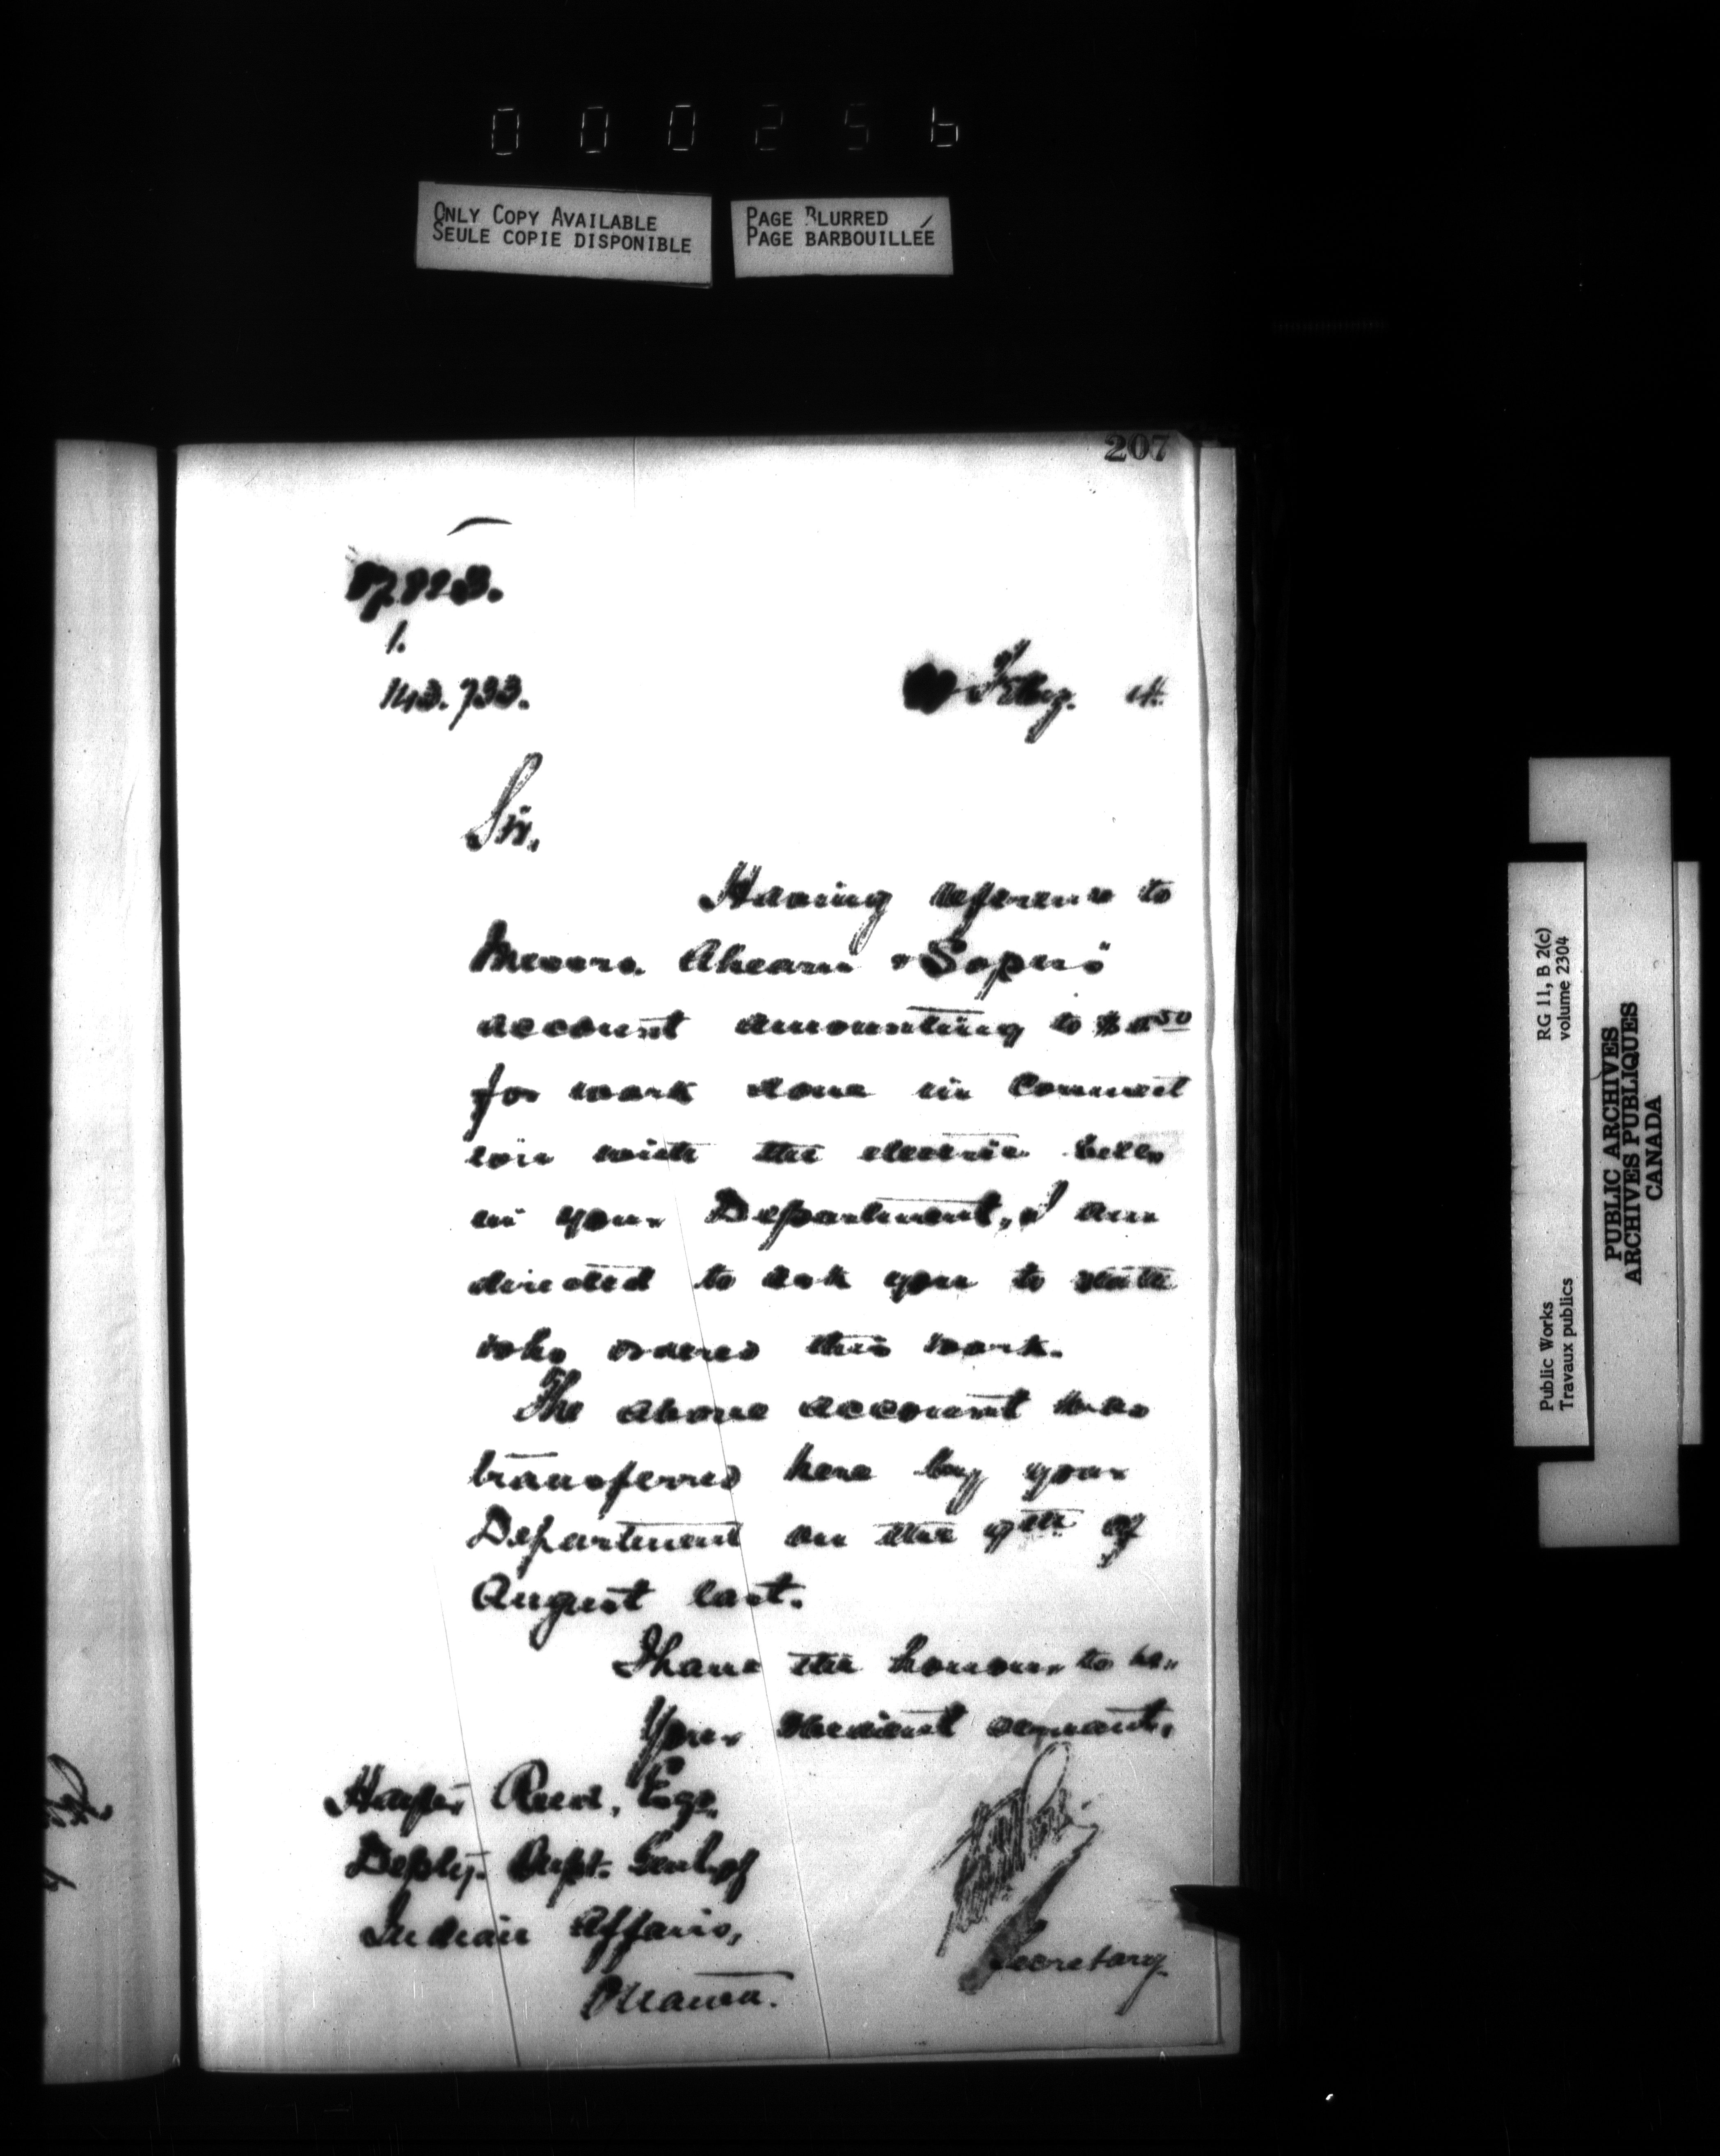 000256
ONLY COPY AVAILABLE
SEULE COPIE DISPONIBLE
PAGE BLURRED
PAGE BARBOUILLÉE
207
1.
143.733.
Feby. 4.
Sir,
Having reference to
Messrs. Ahearn & Soper's
account amounting to
for work done in connect
ion with the electric bells
in your Department, I am
directed to ask you to state
who ordered this work.
The above account was
transferred here by your
Department on the 9th of
August last.
I have the honour to be,
Your obedient servant,
Hayter Reed, Esqr.
Depty. Supt. Genl. of
Indian Affairs,
Ottawa.
Secretary
RG 11, B 2(c)
volume 2304
Public Works
Travaux publics
PUBLIC ARCHIVES
ARCHIVES PUBLIQUES
CANADA